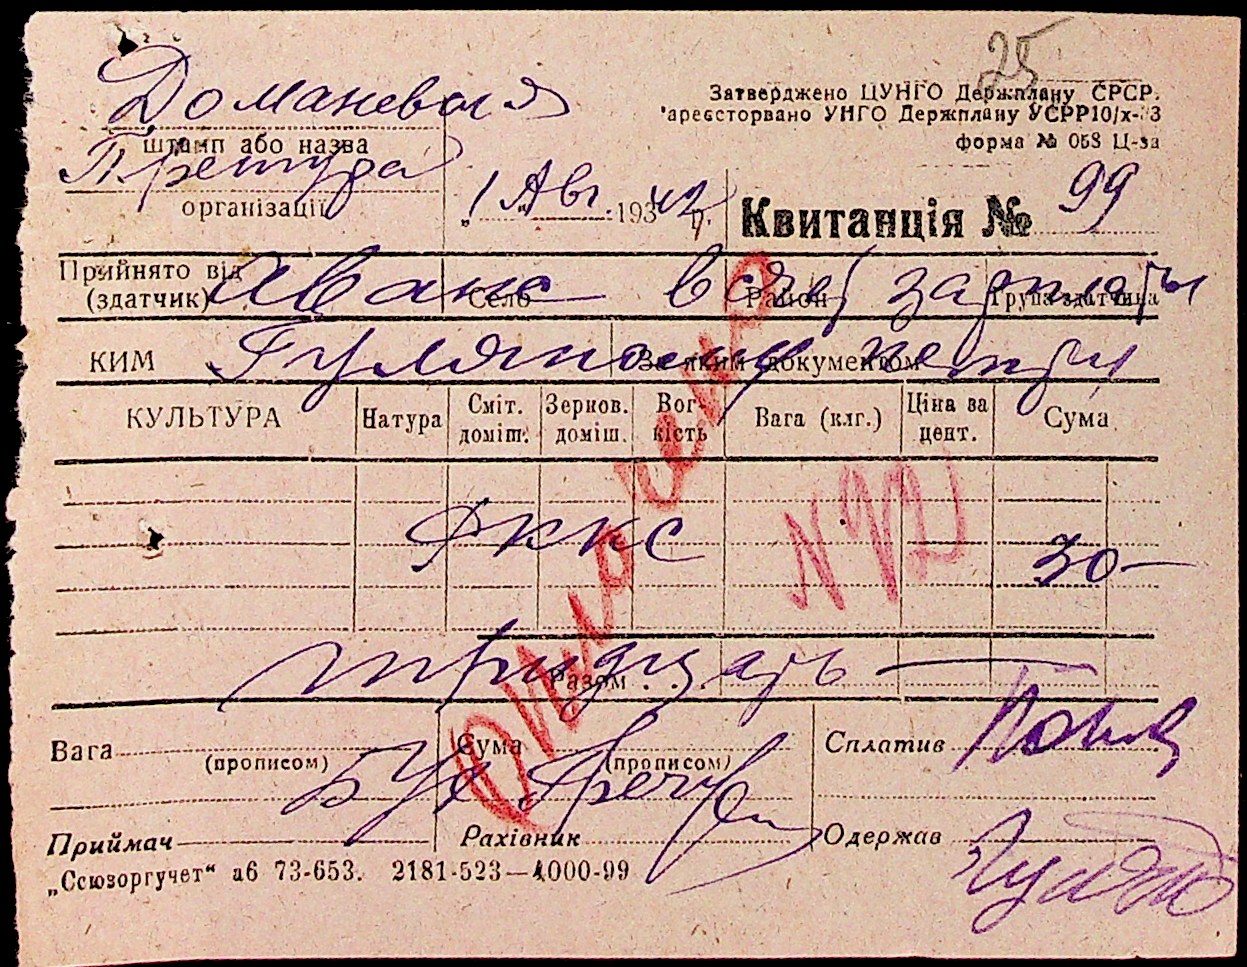 25
Доманевская
Затверджено ЦУНГО Держплану СРСР.
арееєторвано УНГО Держплану УСРР10/х- 3
штамп або назва
форма № 058 Ц-за
Претура
організації
„1" Авг. 1942 р.
Квитанція № 99
Прийнято від Аванс в счет зарплаты
(здатчик) Село Район Група здатчика
КИМ За яким документом
КУЛЬТУРА Натура Сміт. доміш. Зернов. доміш. Вогкість Вага (клг.) Ціна за цент. Сума
ФККС
N 92
30-
тридцать
Разом
Оплачено
Вага (прописом) Сума (прописом) Сплатив
Бух
Приймач Рахівник Одержав
„Сєюзоргучет" аб 73-653. 2181-523—4000-99